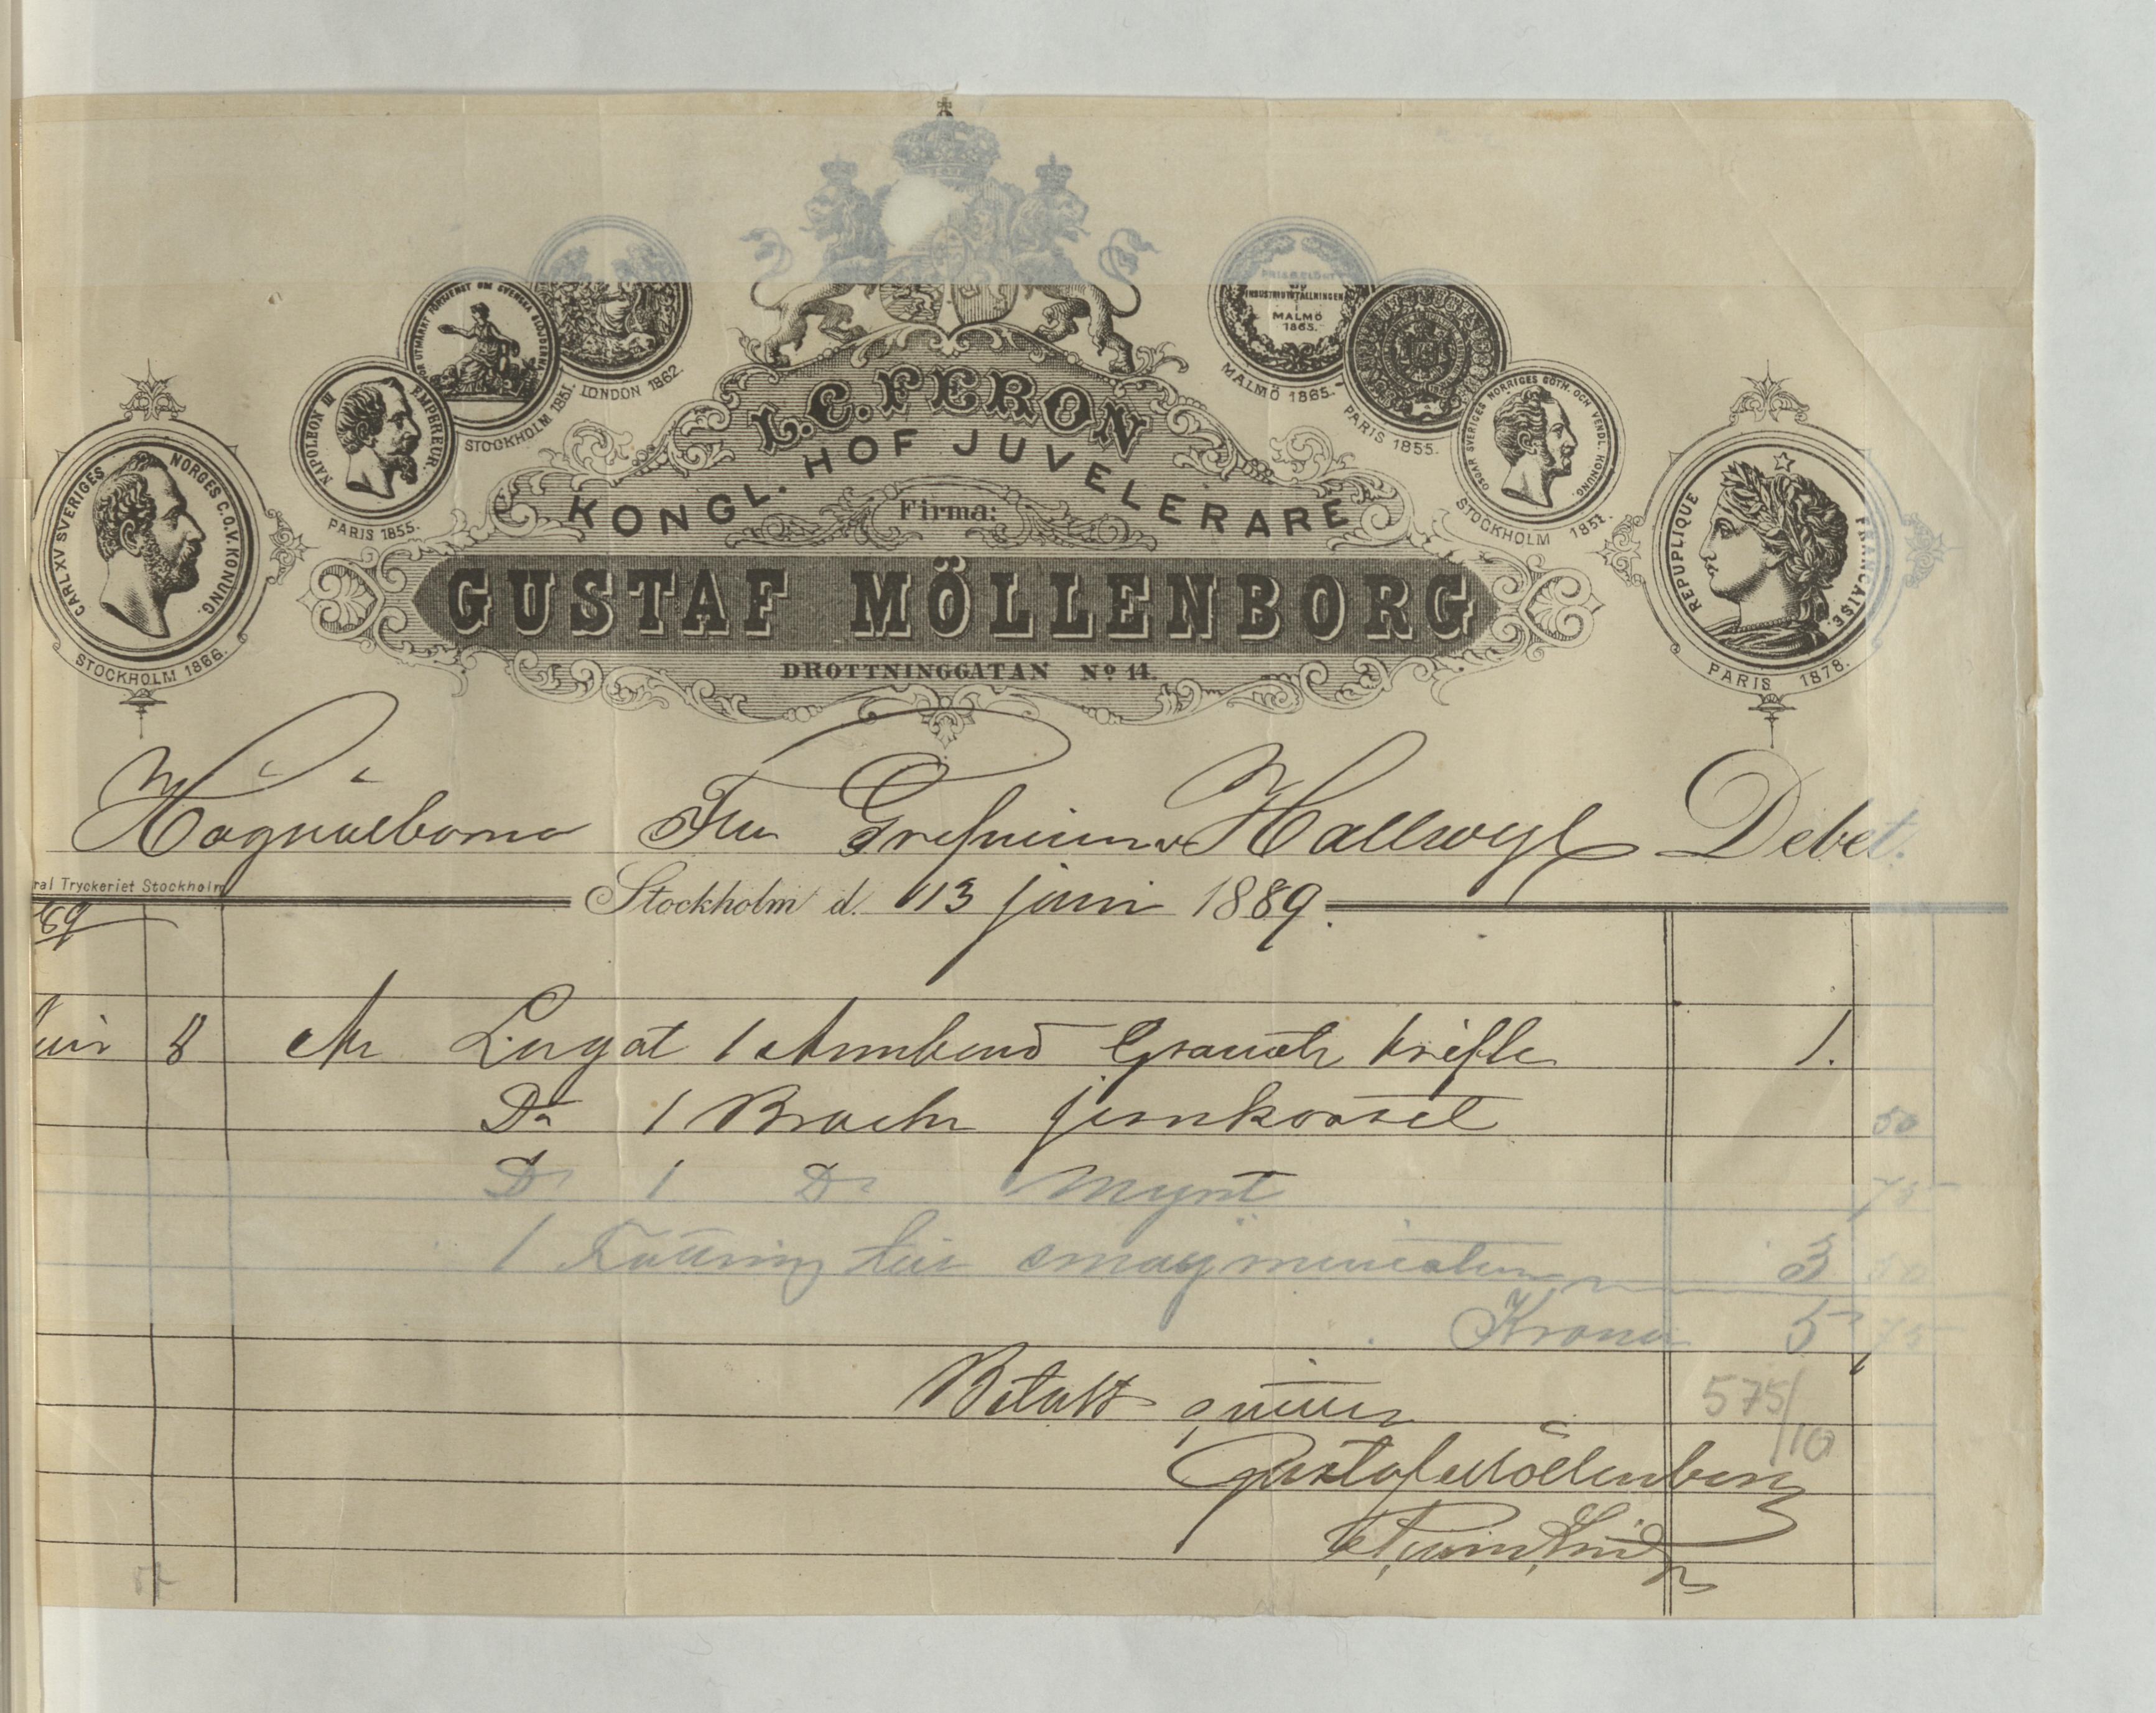 CARL XV SVERIGES NORGES C.O.V. KONUNG.
STOCKHOLM 1866.
NAPOLEON III EMPEREUR.
PARIS 1855.
FÖR UTMÄRKT FÖRTJENST OM SVENSKA SLÖJDERNA
STOCKHOLM 1851.
LONDON 1862.
PRISBELÖNT
INDUSTRIUTSTÄLLNINGEN
I
MALMÖ
1865.
MALMÖ 1865.
PARIS 1855.
OSCAR SVERIGES NORRIGES GÖTH. OCH VENDL. KONUNG.
STOCKHOLM 1851.
REPUPLIQUE FRANCAISE.
PARIS 1878.
L. C. FERON
KONGL. HOF JUVELERARE
Firma:
GUSTAF MÖLLENBORG
DROTTNINGGATAN No 14.
Högvälborna Fru Grefvinnan v Hallwyl Debet.
ral Tryckeriet Stockholm
Stockholm d. 13 juni 1889.
89
Juni 8 Lagat 1 Armband Granater 1.
Do 1 Broche 50
Do 1 Do Mynt 75
1 3 50
Kronor 5 75
Betalt qvitteras
575/10
Gustaf Möllenborg